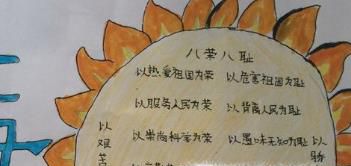 八荣八耻
以热爱祖国为荣 以危害祖国为耻
以服务人民为荣 以背离人民为耻
以崇尚科学为荣 以愚昧无知为耻
以艰苦
以骄